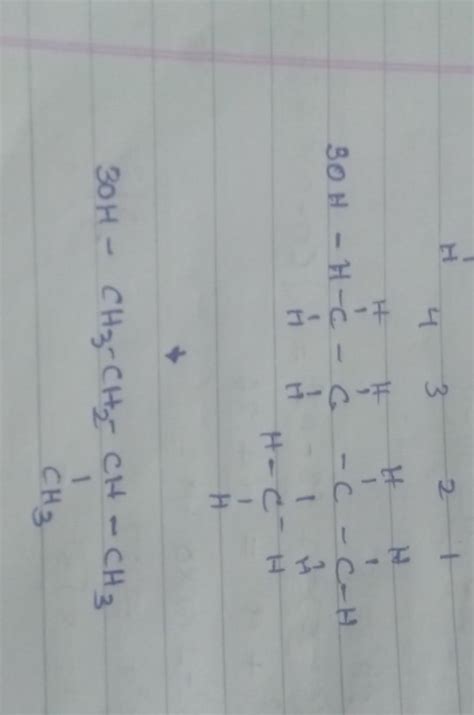 H 4 3 2 1
H H H H
| | | |
3OH - H-C - C - C - C-H
| | | |
H H H
H-C-H
|
H
3OH - CH3-CH2-CH-CH3
|
CH3